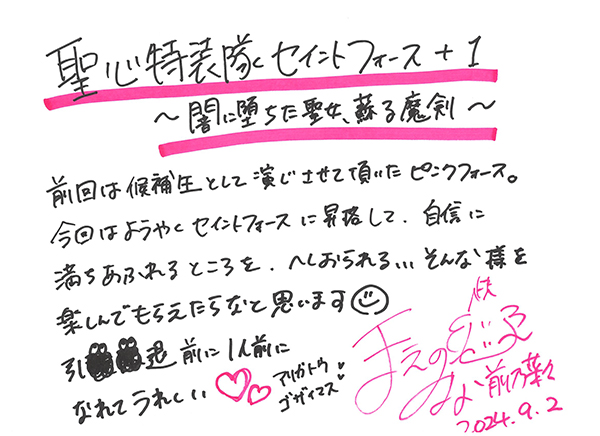 聖心特装隊セイントフォース+1
～闇に堕ちた聖女、蘇る魔剣～
前回は候補生として演じさせて頂いたピンクフォース。
今回はようやくセイントフォースに昇格して、自信に
満ちあふれるところを、へしおられる...そんな様を
楽しんでもらえたらなと思います
引 退前に1人前に
なれてうれしい
アリガトウ
ゴザイマス
前乃菜々
2024.9.2